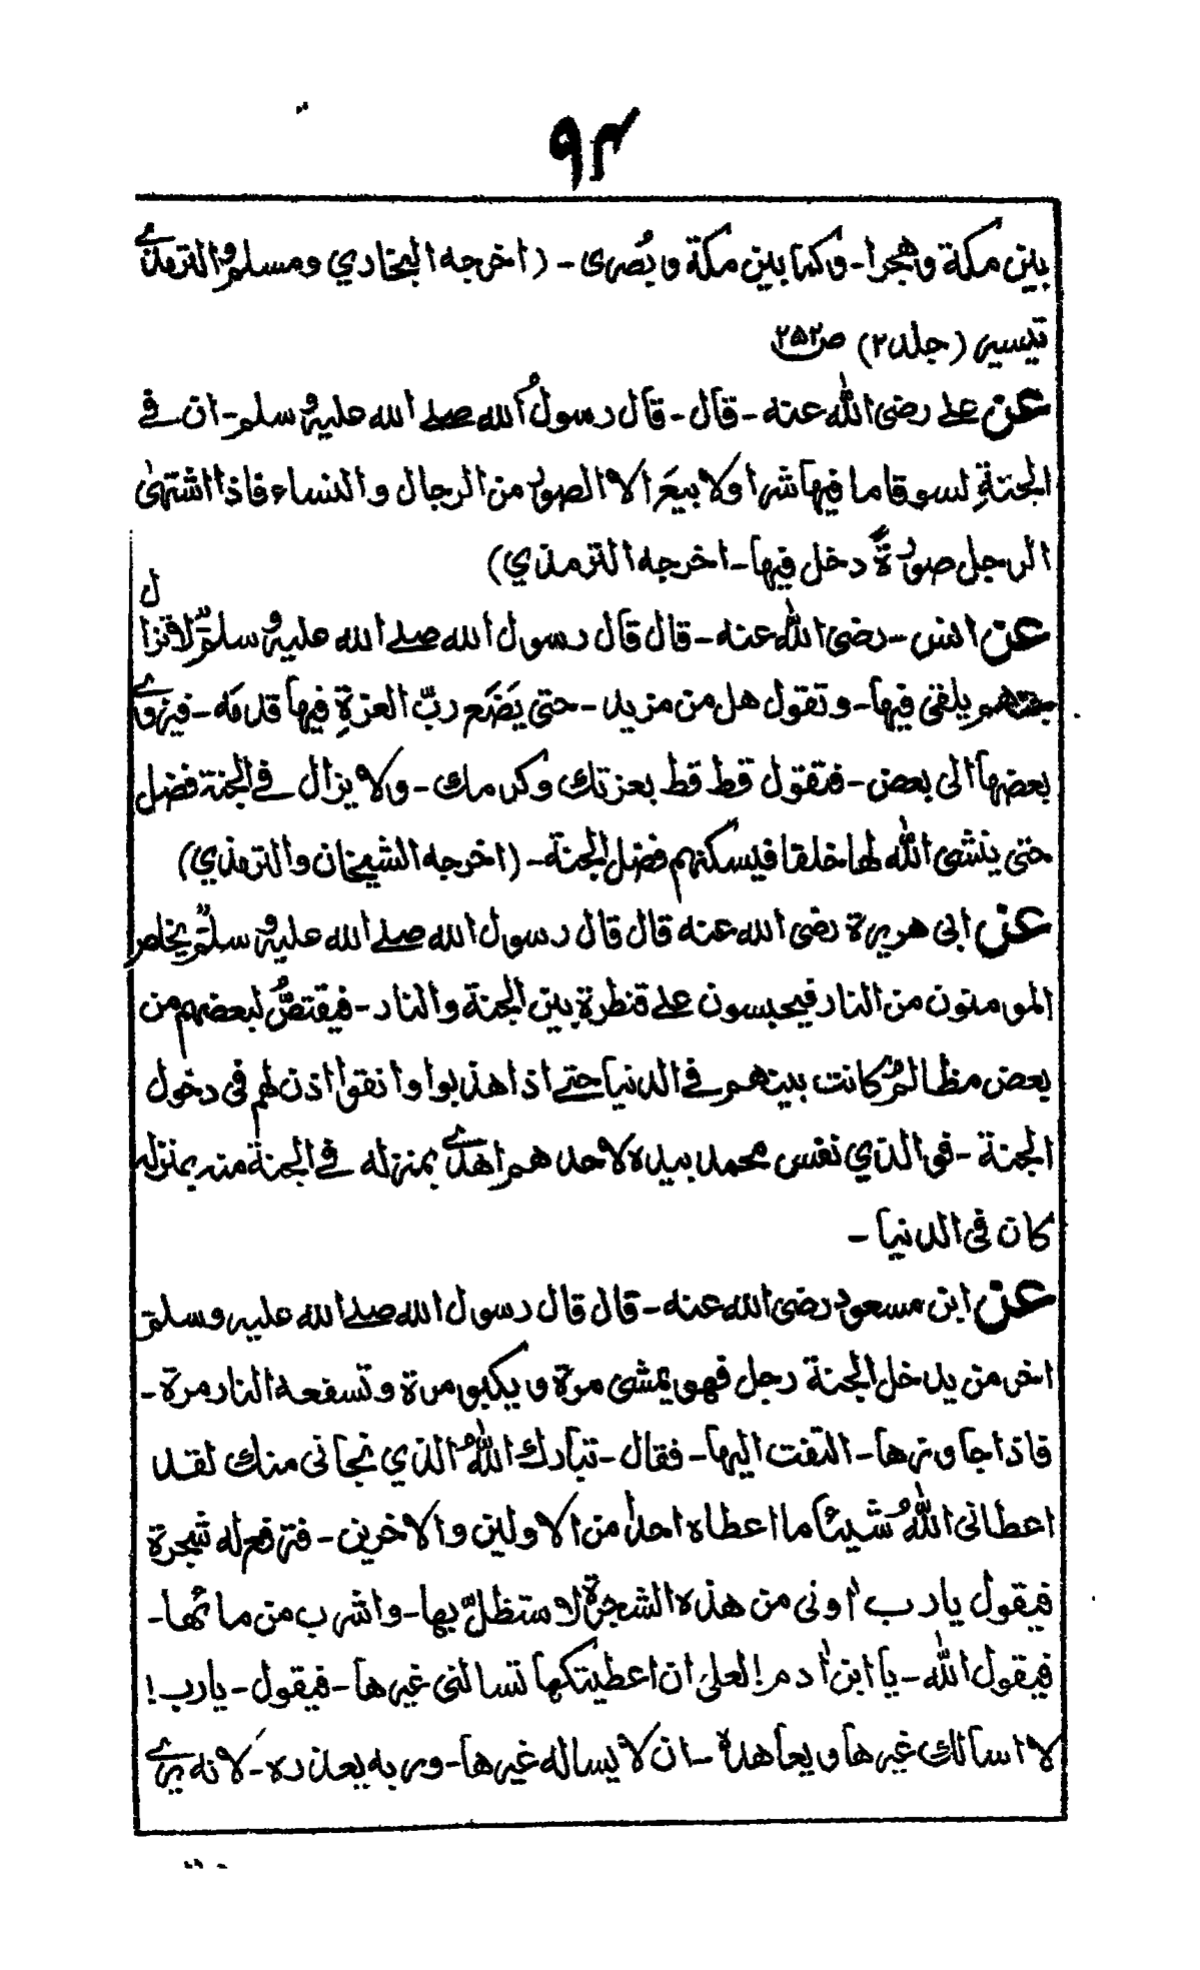 ۹۴
بين مكة وهجرا - وكما بين مكة وبُصرى - (اخرجه البخاري ومسلم والترمذي
تيسير (جلد۲) ص۲۵۲
عن على رضى الله عنه - قال - قال رسولُ الله صلے الله عليه وسلم - ان فے
الجنةِ لسوقا ما فيها شرا ولا بيعَ الا الصور من الرجال والنساء فاذا اشتهىٰ
الرجل صورةً دخل فيها - اخرجه الترمذي)
عن انس - رضى الله عنه - قال قال رسول الله صلے الله عليه وسلم لا تزال
جهنم يلقى فيها - وتقول هل من مزيد - حتى يَضَع ربّ العزةِ فيها قدمَه - فينزوے
بعضها الى بعض - فتقول قط قط بعزتك وكرمك - ولا يزال فے الجنة فضل
حتى ينشىَٔ الله لها خلقا فيسكنهم فضل الجنة - (اخرجه الشيخان والترمذي)
عن ابى هريرة رضى الله عنه قال قال رسول الله صلے الله عليه وسلم يخلص
المومنون من النار فيحبسون علے قنطرة بين الجنة والنار - فيقتصُّ لبعضهم من
بعض مظالمُ كانت بينهم فے الدنيا حتے اذا هذبوا وانقوا اذن لهم فى دخول
الجنة - فوالذي نفس محمد بيده لاحدهم اهدےٰ بمنزله فے الجنة منه بمنزله
كان فى الدنيا -
عن ابن مسعود رضى الله عنه - قال قال رسول الله صلے الله عليه وسلم
اخر من يدخل الجنة رجل فهو يمشى مرة ويكبو مرة وتسفعه النار مرة -
فاذا جاوزها - التفت اليها - فقال - تبارك اللهُ الذي نجانى منك لقد
اعطانى اللهُ شيئاً ما اعطاه احدا من الاولين والاخرين - فترفع له شجرة
فيقول يارب اونى من هذه الشجرة لاستظلّ بها - واشرب من مائها -
فيقول الله - يا ابن اٰدم! لعلى ان اعطيتكها تسالنى غيرها - فيقول - يارب!
لا اسالك غيرها ويعاهدهٗ - ان لا يساله غيرها - وربه يعذره - لانه يرےٰ